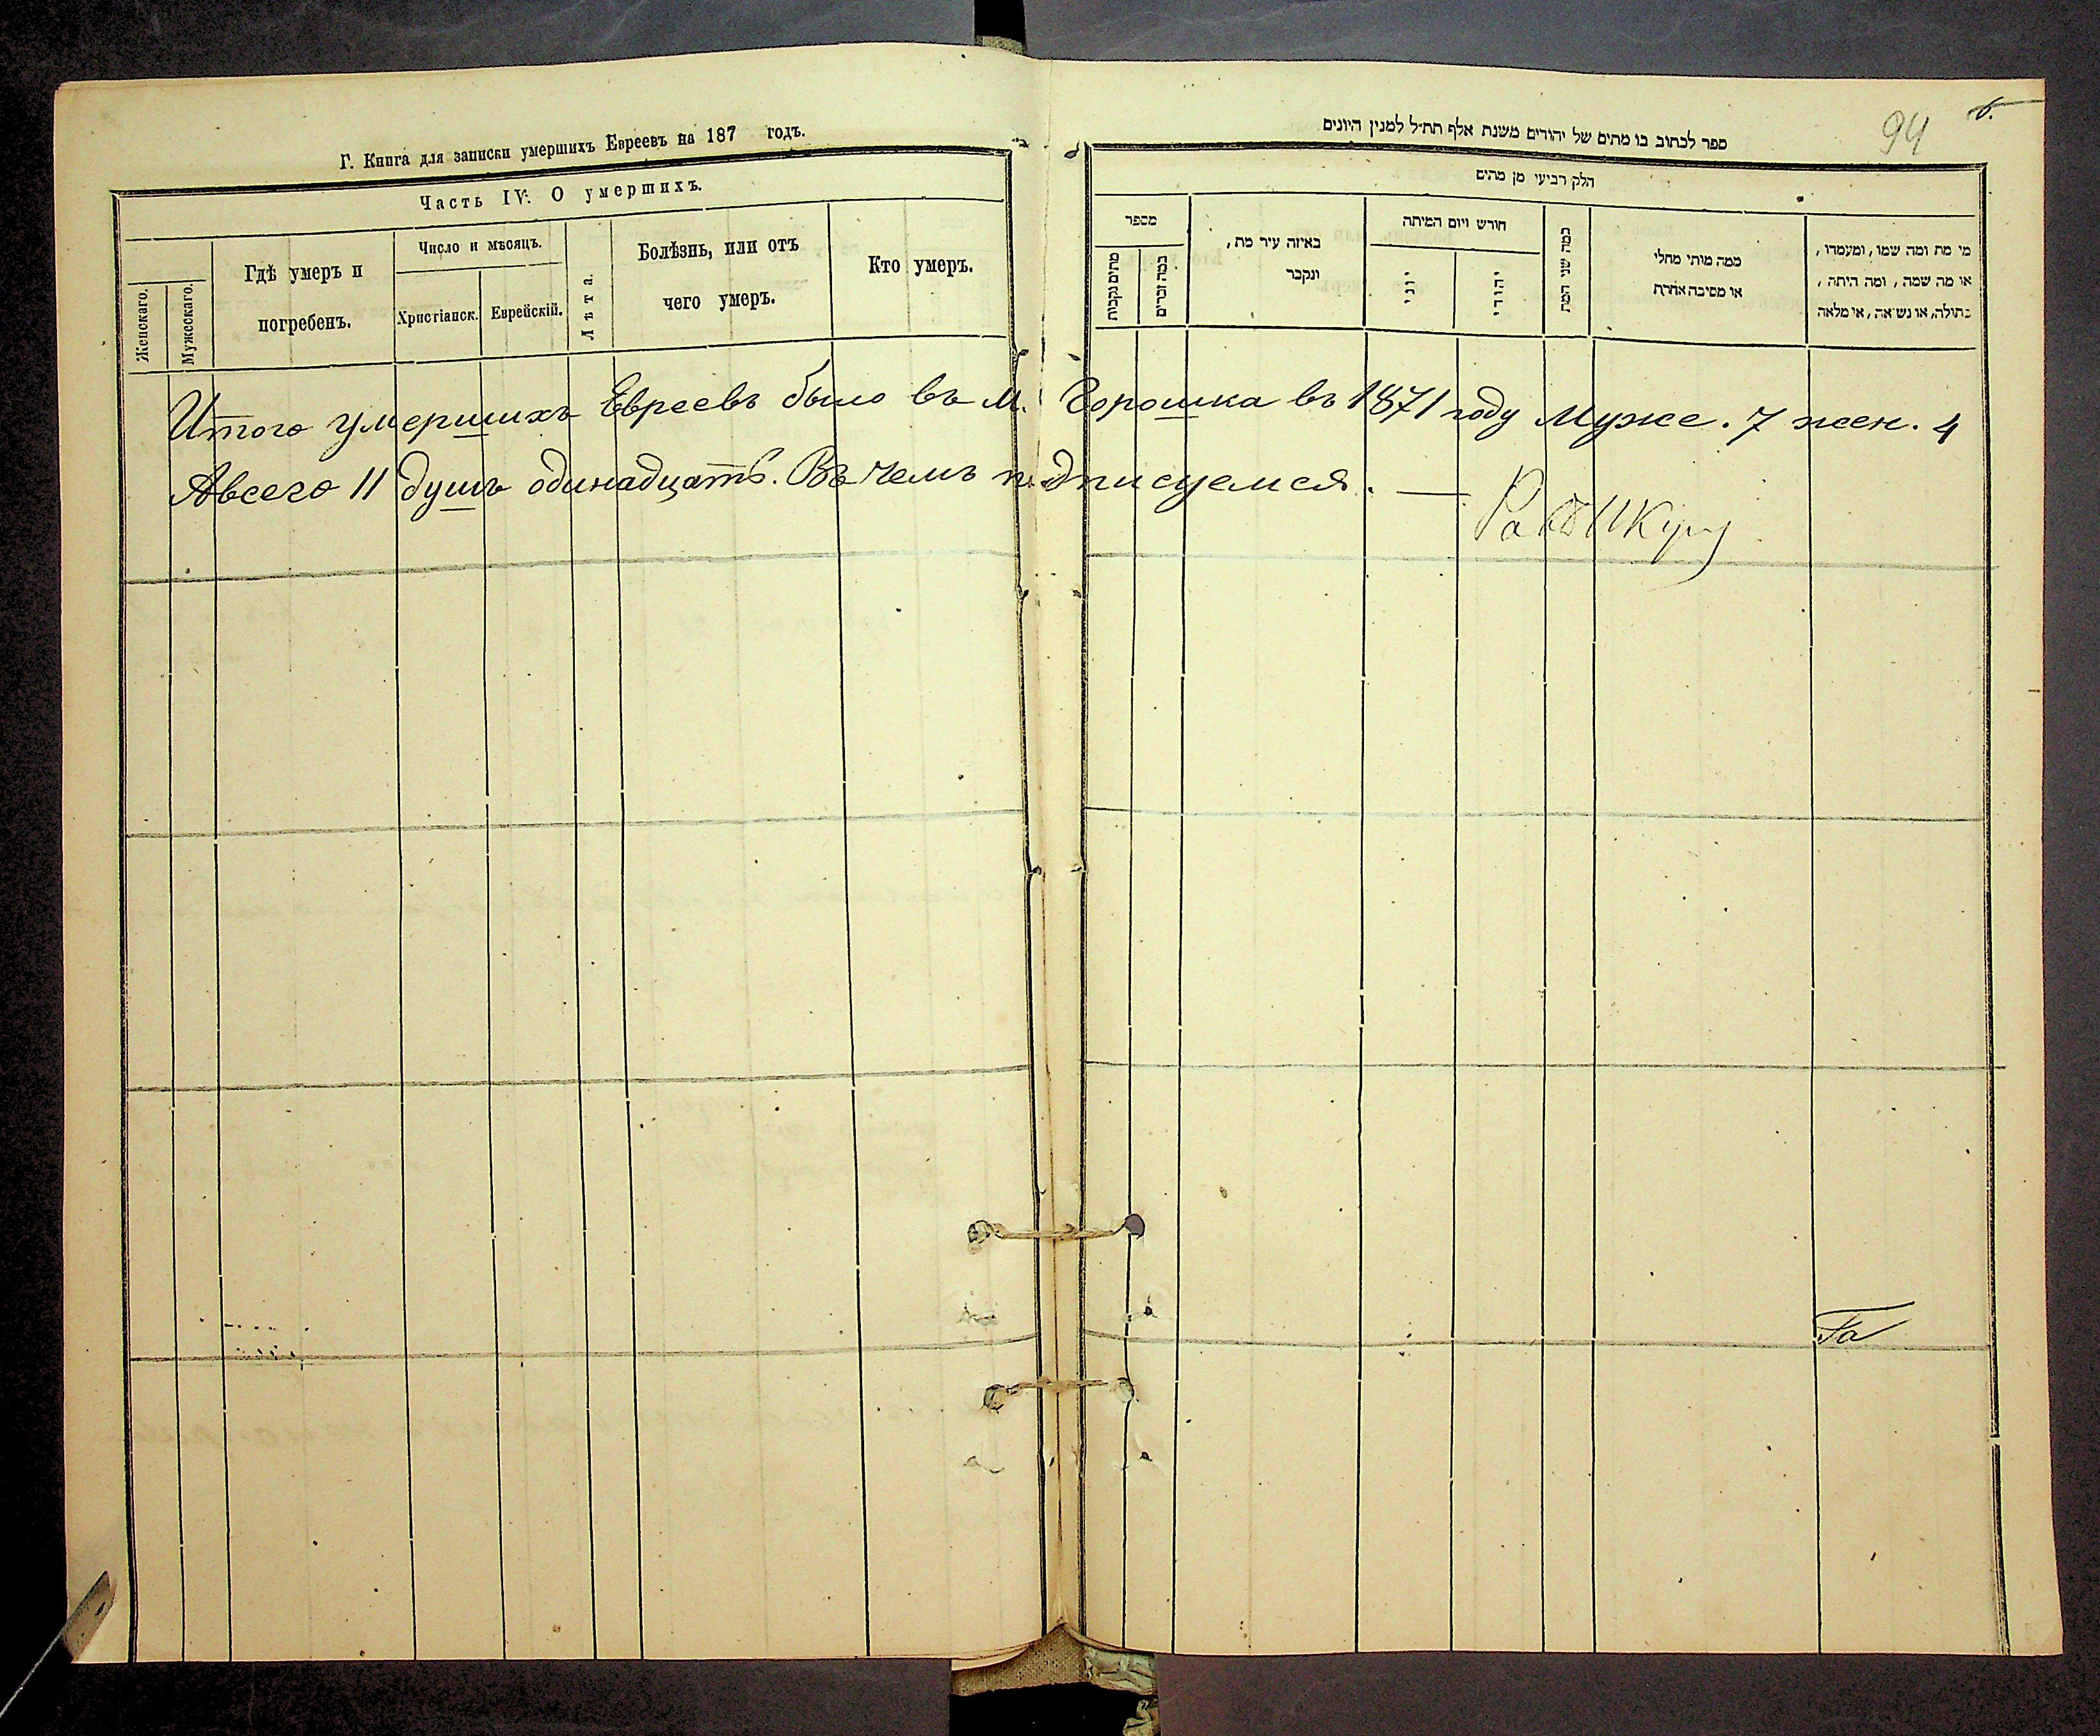 Г. Книга для записки умершихъ Евреевъ на 187 годъ.
Часть IV. О умершихъ.
Женскаго.
Мужескаго.
Гдѣ умеръ и
погребенъ.
Число и мѣсяцъ.
Христіанск.
Еврейскій.
Лѣта.
Болѣзнь, или отъ
чего умеръ.
Кто умеръ.
94
ספר לכתוב בו מתים של יהודים משנת אלף תת״ל למנין היונים
חלק רביעי מן מתים
מספר
מתים נקבות
כמה זכרים
באיזה עיר מת,
ונקבר
חורש ויום המיתה
יוני
יהודי
כמה שני המת
ממה מותי מחלי
או מסיבה אחרת
מי מת ומה שמו, ומעמדו,
או מה שמה, ומה היתה,
בתולה, או נשאה, או מלאה
Итого умершихъ Евреевъ было въ м. Горошка въ 1871 году муже. 7 жен. 4
Авсего 11 душъ одинадцать. Въ чемъ подписуемся. —
Га